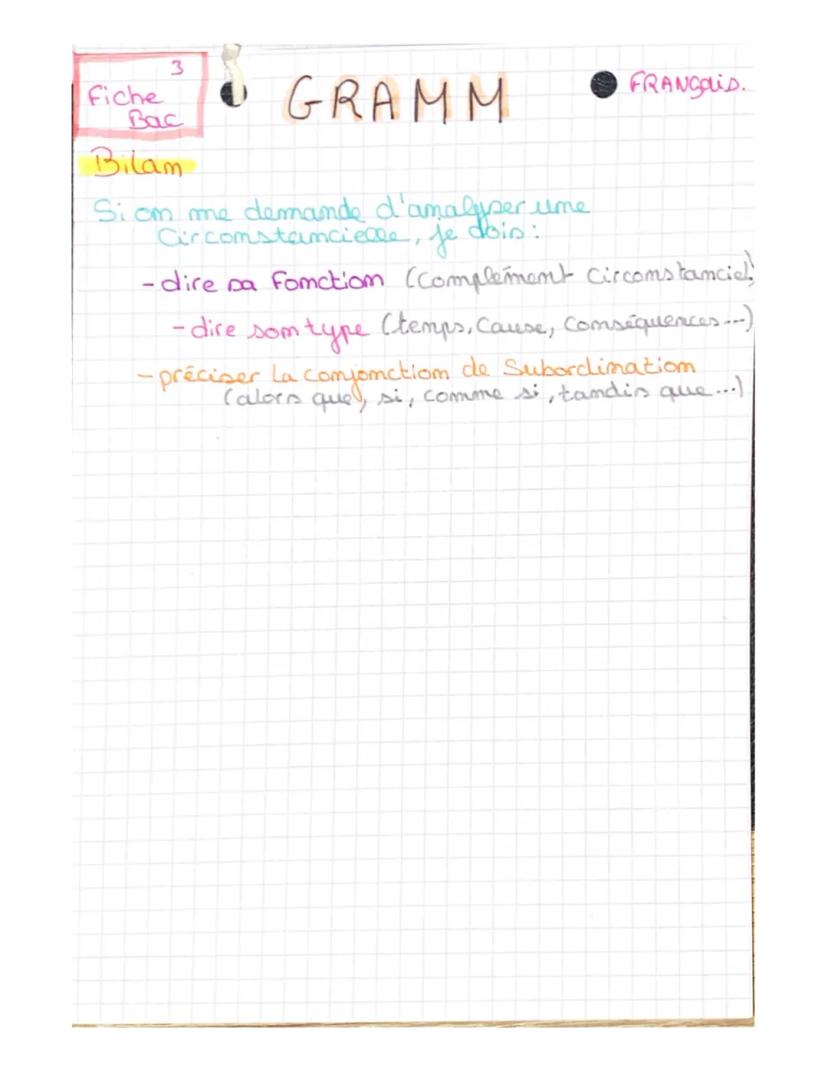 3
Fiche
Bac
GRAMM
FRANçais.
Bilan
Si on me demande d'analyser une
Circonstancielle, je dois :
- dire sa Fonction (Complément Circonstanciel)
- dire son type (temps, Cause, Conséquences...)
- préciser la Conjonction de Subordination
(alors que, si, comme si, tandis que...)